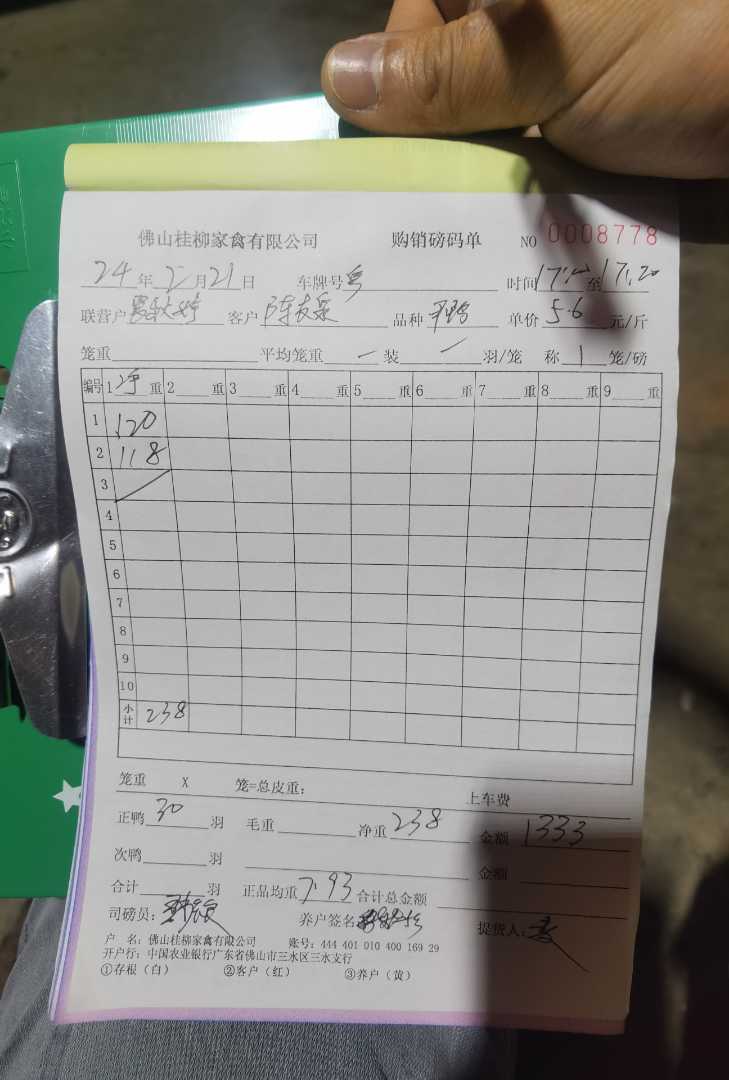 佛山桂柳家禽有限公司 购销磅码单 NO 0008778
24年2月21日 车牌号 时间 至17:20
联营户 客户 陈友泉 品种 单价 5.6 元/斤
笼重 平均笼重 一 装 羽/笼 称 1 笼/磅
编号 1 净 重 2 重 3 重 4 重 5 重 6 重 7 重 8 重 9 重
1 120
2 118
3
4
5
6
7
8
9
10
小计 238
笼重 X 笼=总皮重: 上车费
正鸭 30 羽 毛重 净重 238 金额 1333
次鸭 羽 金额
合计 羽 正品均重 7.93 合计总金额
司磅员: 养户签名 提货人:
户 名: 佛山桂柳家禽有限公司 账号: 444 401 010 400 169 29
开户行: 中国农业银行广东省佛山市三水区三水支行
①存根(白) ②客户(红) ③养户(黄)